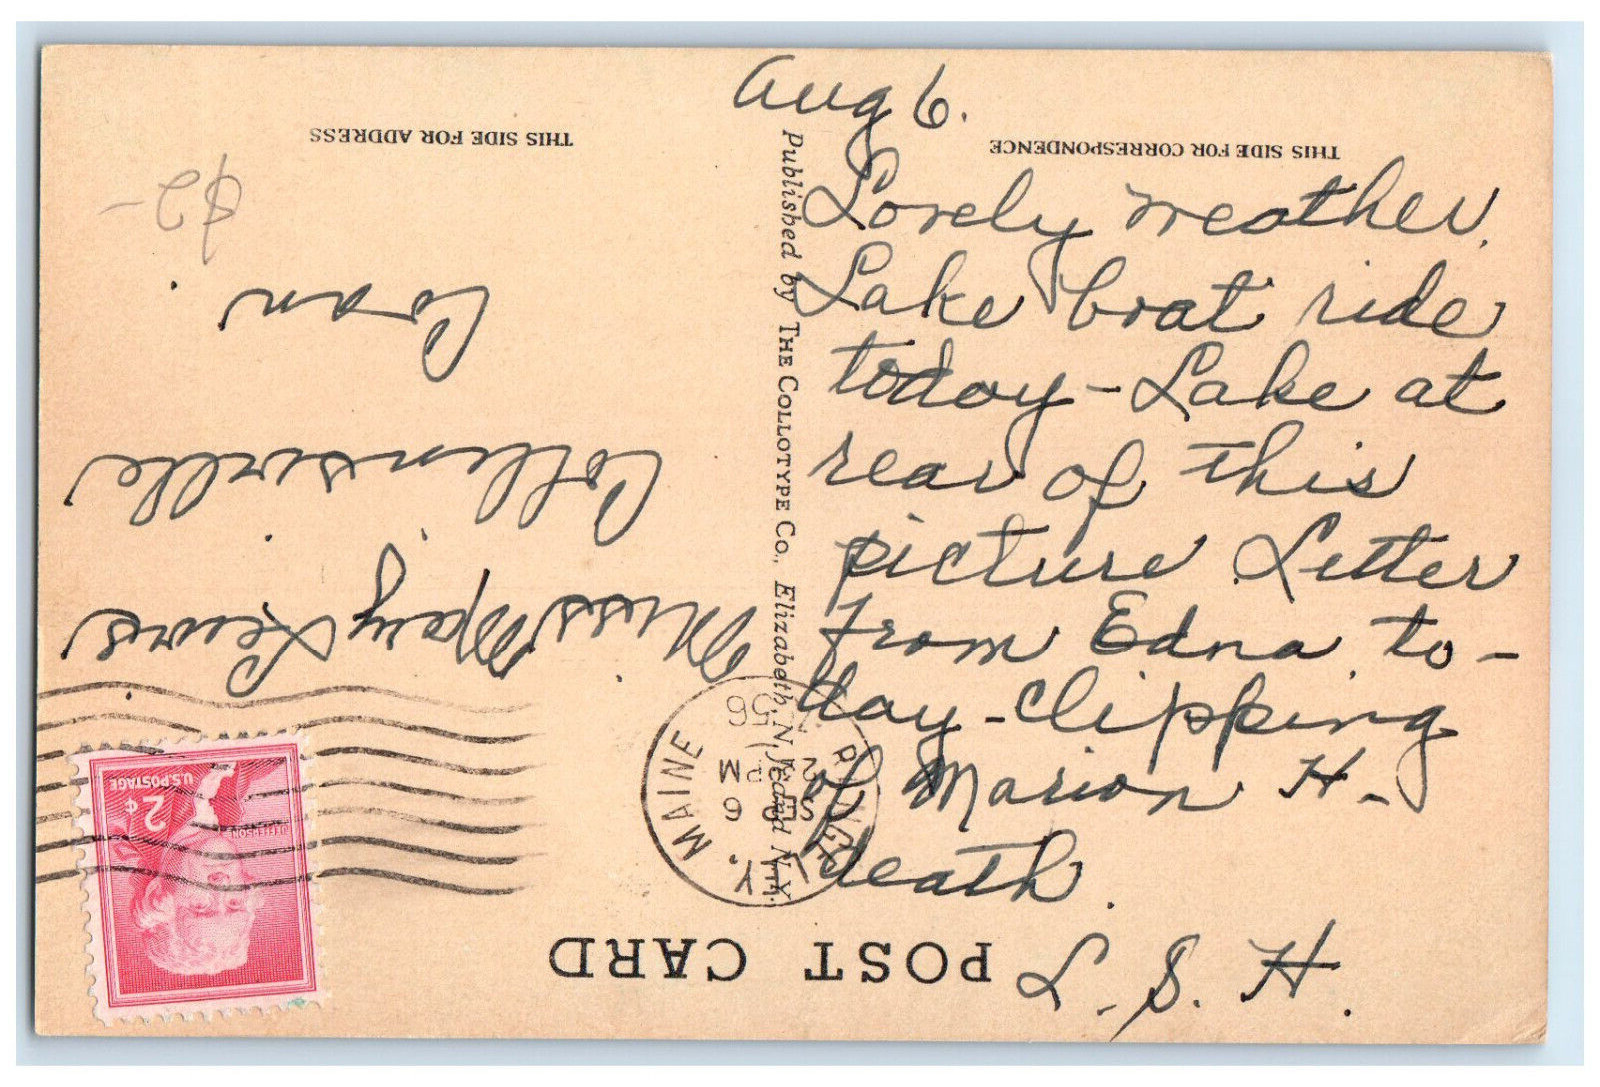 Aug 6.
THIS SIDE FOR CORRESPONDENCE
Lovely weather.
Lake boat ride
today - Lake at
rear of this
picture. Letter
from Edna to-
day - clipping
of Marion H-
death.
L. S. H.
POST CARD
Published by THE COLLOTYPE CO., Elizabeth, N.J. and N.Y.
THIS SIDE FOR ADDRESS
Y, MAINE
SEP 6
2 PM
56
U.S. POSTAGE
2¢
JEFFERSON
Miss Mary Lewis
Collinsville
Conn.
$2-